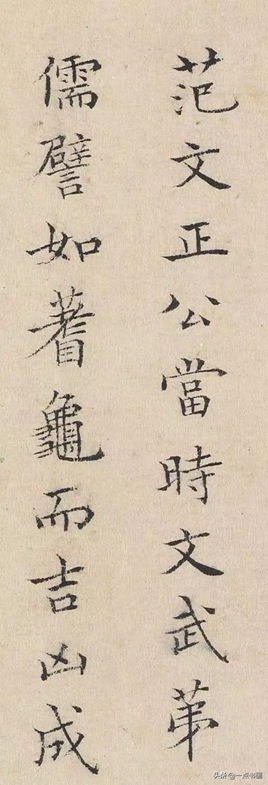 范文正公當時文武苐
儒譬如蓍龜而吉凶成
头条@一点书画